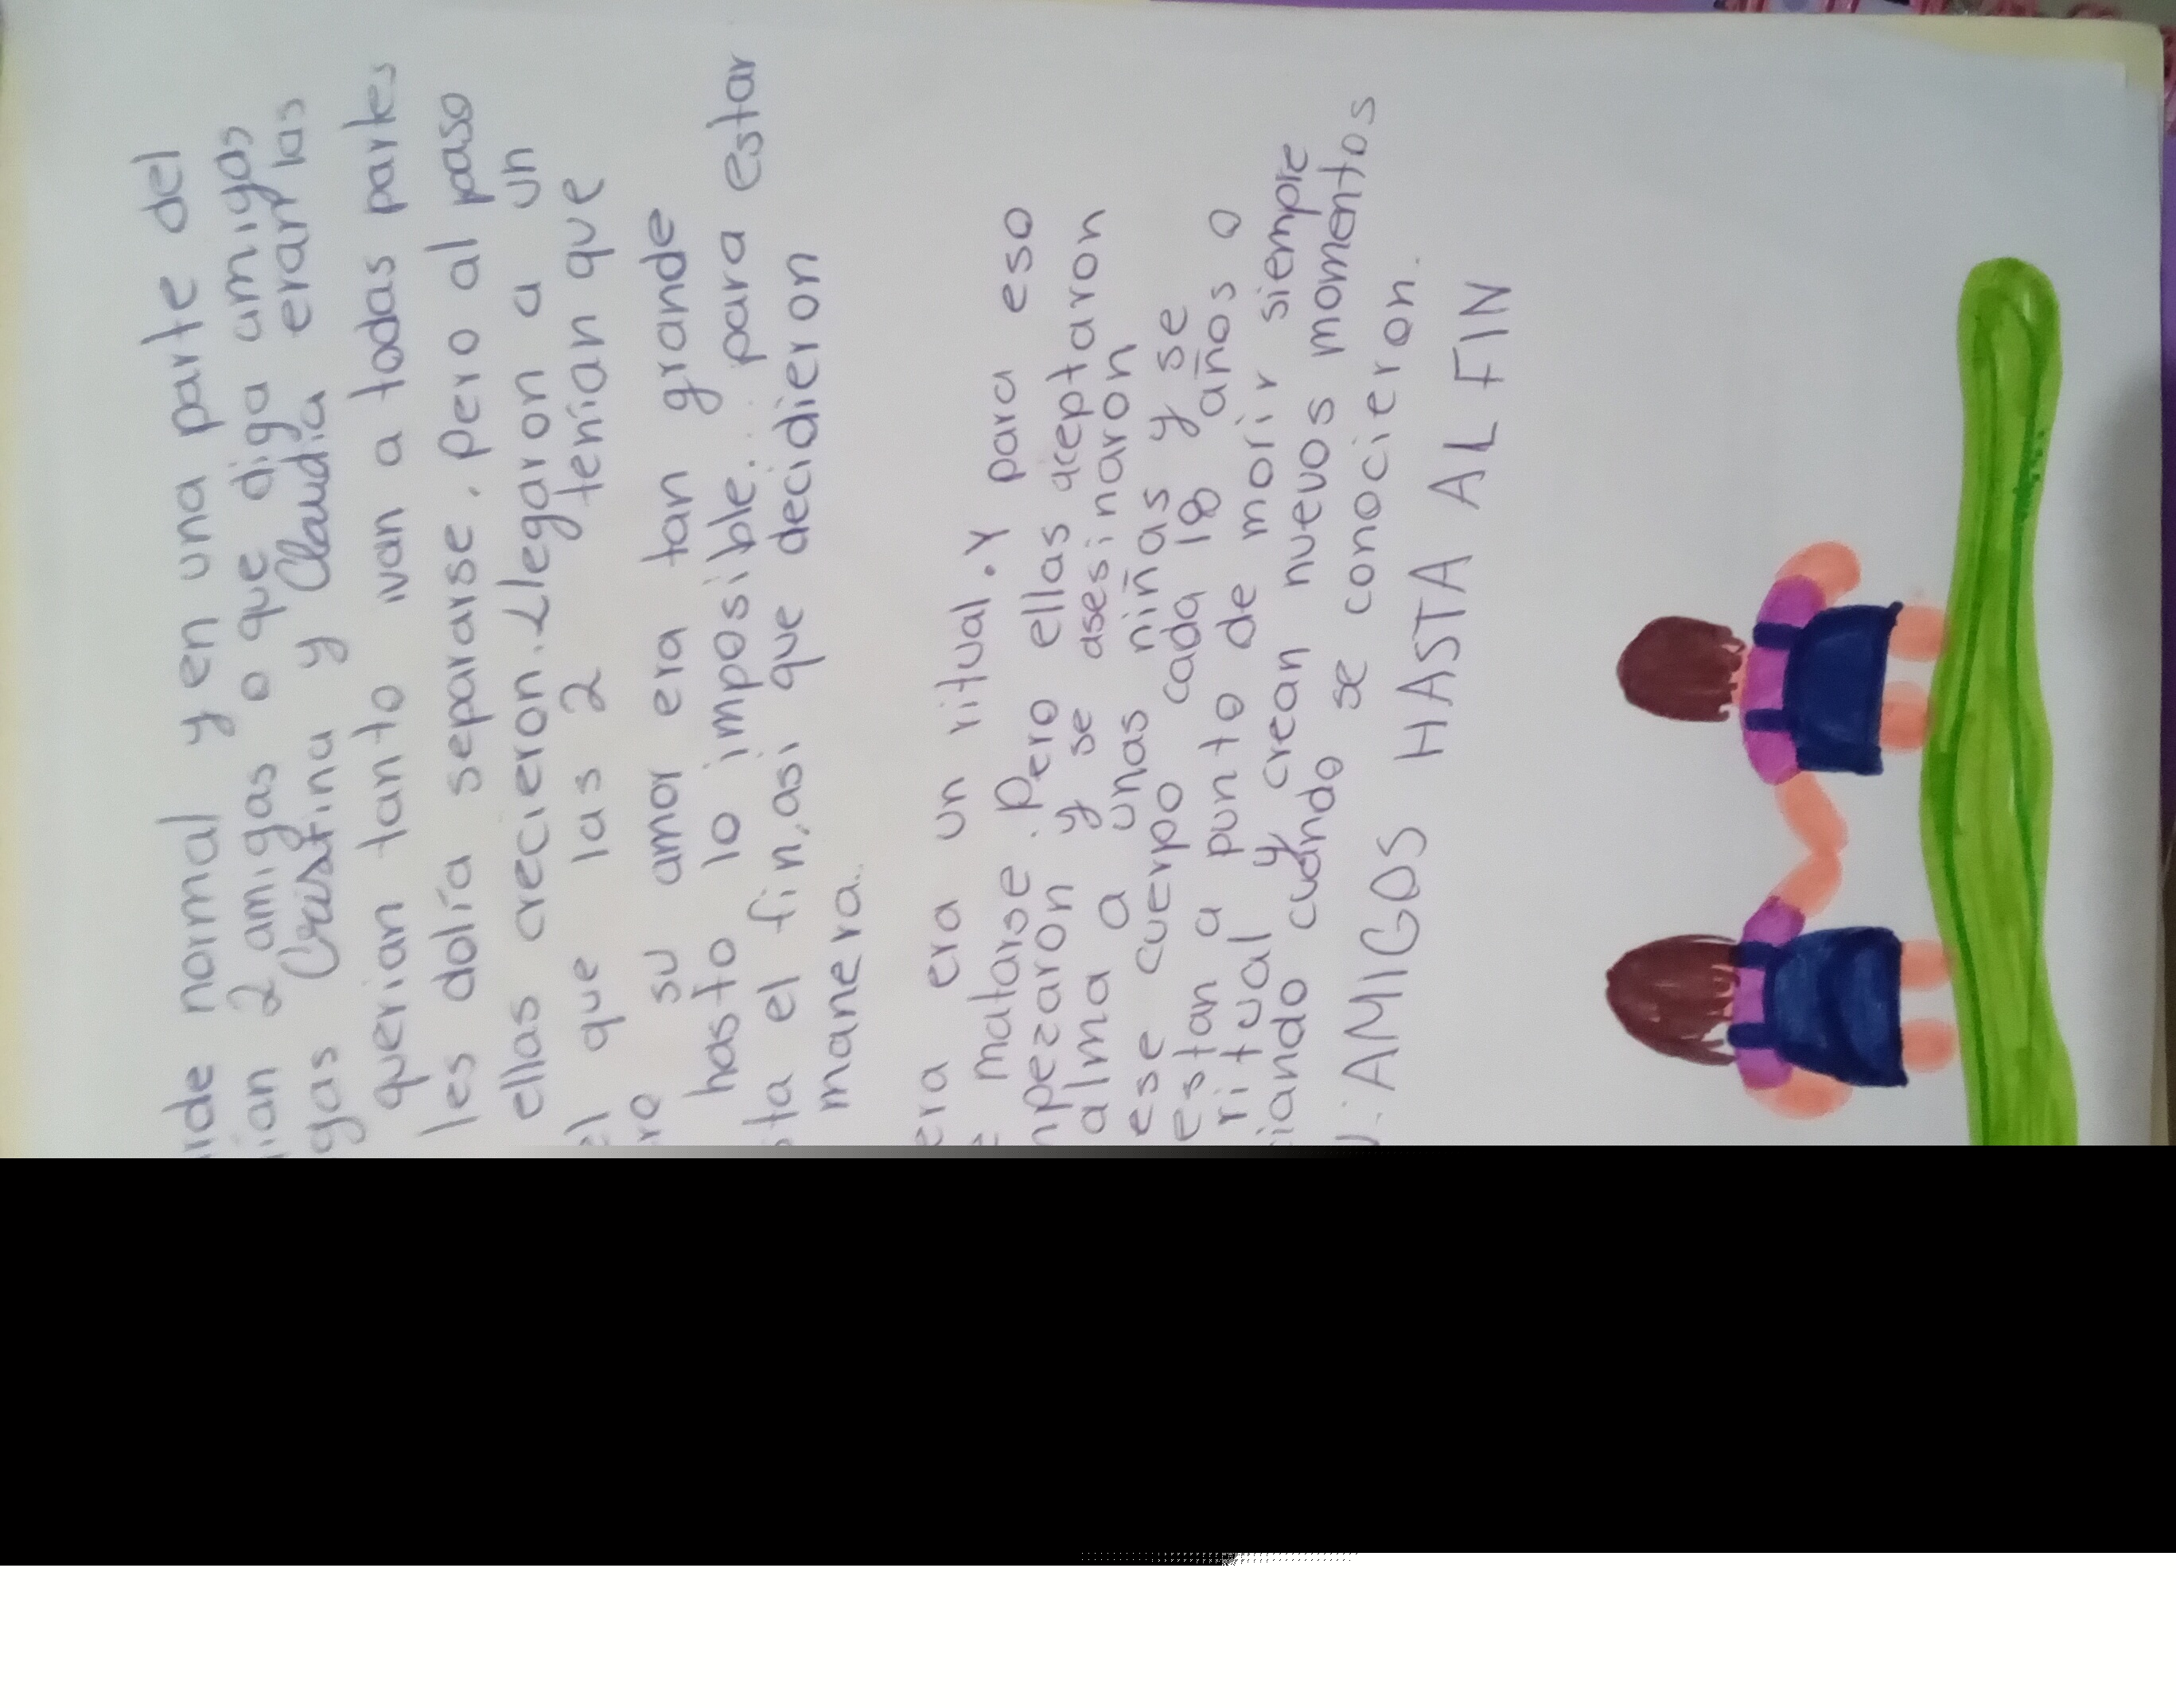 normal y en una parte del
2 amigas o que diga amigas
Cristina y Claudia eran las
querian tanto ivan a todas partes
les dolía separarse. pero al paso
ellas crecieron. Llegaron a un
que las 2 tenian que
su amor era tan grande
hasto lo imposible... para estar
el fin, asi que decidieron
manera..
era un ritual. Y para eso
matarse. Pero ellas aceptaron
y se asesinaron
alma a unas niñas y se
ese cuerpo cada 18 años o
estan a punto de morir siempre
ritual y crean nuevos momentos
cuando se conocieron.
: AMIGOS HASTA AL FIN